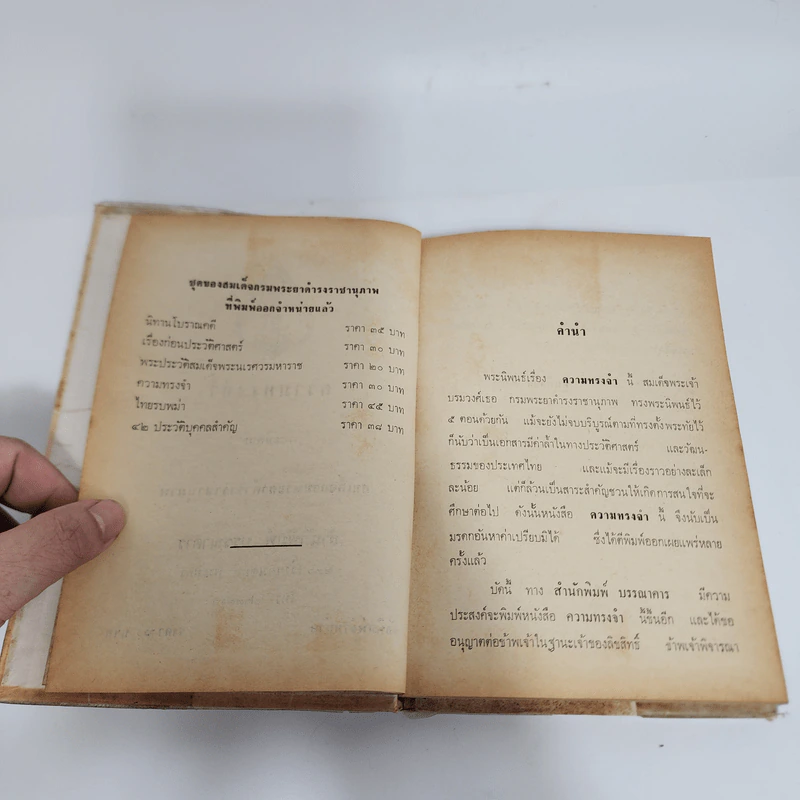 ชุดของสมเด็จกรมพระยาดำรงราชานุภาพ
ที่พิมพ์ออกจำหน่ายแล้ว
นิทานโบราณคดี ราคา ๓๕ บาท
เรื่องก่อนประวัติศาสตร์ ราคา ๓๐ บาท
พระประวัติสมเด็จพระนเรศวรมหาราช ราคา ๒๐ บาท
ความทรงจำ ราคา ๓๐ บาท
ไทยรบพม่า ราคา ๔๕ บาท
๔๒ ประวัติบุคคลสำคัญ ราคา ๓๘ บาท
คำนำ
พระนิพนธ์เรื่อง ความทรงจำ นี้ สมเด็จพระเจ้า
บรมวงศ์เธอ กรมพระยาดำรงราชานุภาพ ทรงพระนิพนธ์ไว้
๕ ตอนด้วยกัน แม้จะยังไม่จบบริบูรณ์ตามที่ทรงตั้งพระทัยไว้
ก็นับว่าเป็นเอกสารมีค่าล้ำในทางประวัติศาสตร์ และวัฒน-
ธรรมของประเทศไทย และแม้จะมีเรื่องราวอย่างละเล็ก
ละน้อย แต่ก็ล้วนเป็นสาระสำคัญชวนให้เกิดการสนใจที่จะ
ศึกษาต่อไป ดังนั้นหนังสือ ความทรงจำ นี้ จึงนับเป็น
มรดกอันหาค่าเปรียบมิได้ ซึ่งได้ตีพิมพ์ออกเผยแพร่หลาย
ครั้งแล้ว
บัดนี้ ทาง สำนักพิมพ์ บรรณาคาร มีความ
ประสงค์จะพิมพ์หนังสือ ความทรงจำ นี้ขึ้นอีก และได้ขอ
อนุญาตต่อข้าพเจ้าในฐานะเจ้าของลิขสิทธิ์ ข้าพเจ้าพิจารณา